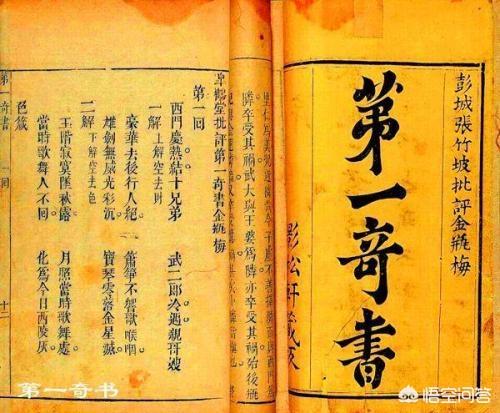 彭城張竹坡批評金瓶梅
第一奇書
影松軒藏
隣卒受其禍武大與王婆為隣亦卒受其禍始後
鶴堂批評第一奇書金瓶梅
第一回
西門慶熱結十兄弟 武二郎冷遇親哥嫂
一解 上解空去財
豪華去後行人絕 簫箏不響歌喉咽
雄劍無威光彩沉 寶琴零落金星滅
二解 下解空去色
玉階寂寞墜秋露 月照當時歌舞處
當時歌舞人不回 化為今日西陵灰
色箴
第一奇書 一回 十二
第一奇书
悟空问答